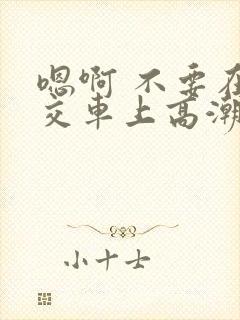 嗯啊 不要在
交车上高潮
小十士